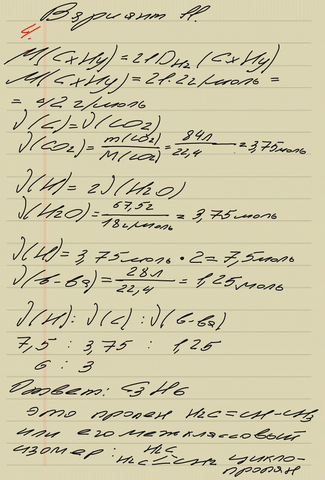 Вариант 11.
4.
M(CxHy) = 21DH2(CxHy)
M(CxHy) = 21·2г/моль =
= 42 г/моль
ν(C) = ν(CO2)
ν(CO2) = m(CO2)/M(CO2) = 84л/22,4 = 3,75моль
ν(H) = 2ν(H2O)
ν(H2O) = 67,5г/18г/моль = 3,75моль
ν(H) = 3,75моль · 2 = 7,5моль
ν(в-ва) = 28л/22,4 = 1,25моль
ν(H) : ν(C) : ν(в-ва)
7,5 : 3,75 : 1,25
6 : 3
Ответ: C3H6
это пропен H2C=CH-CH3
или его межклассовый
изомер: H2C
H2C-CH2 цикло-
пропан